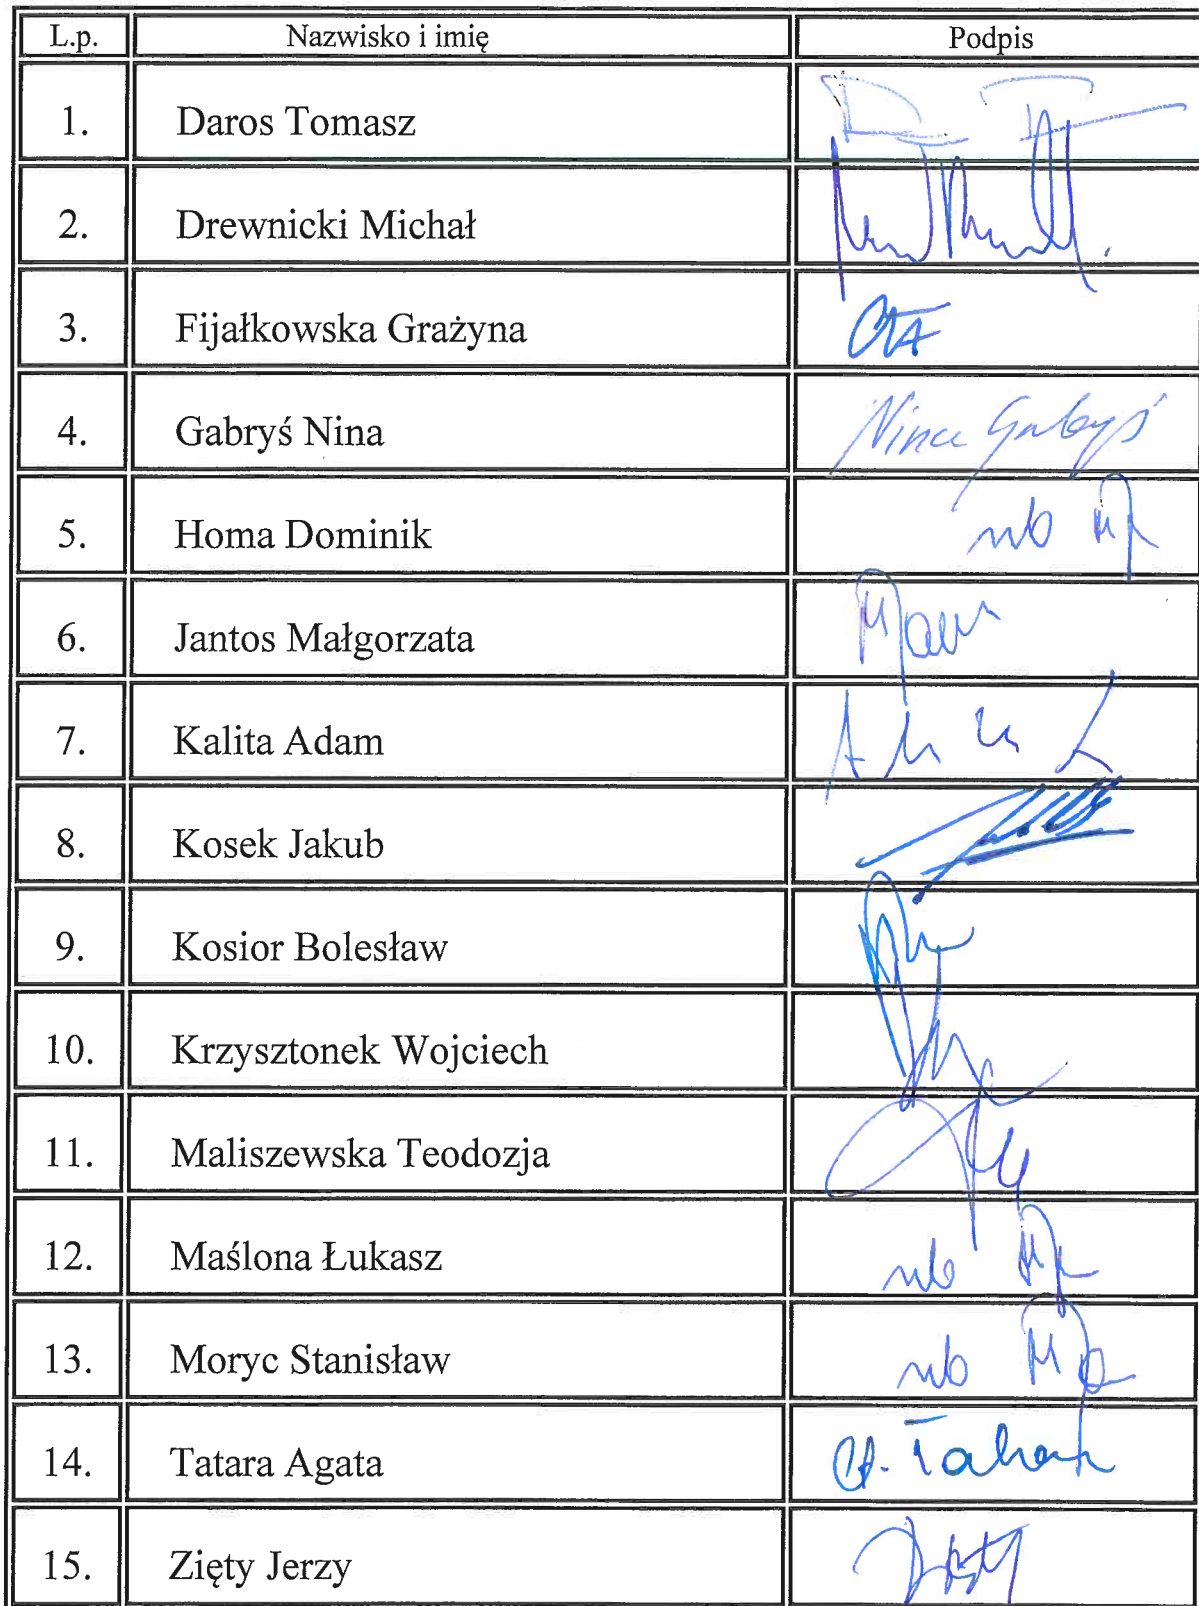 L.p. Nazwisko i imię Podpis
1. Daros Tomasz
2. Drewnicki Michał
3. Fijałkowska Grażyna
4. Gabryś Nina Nina Gabryś
5. Homa Dominik nb
6. Jantos Małgorzata
7. Kalita Adam
8. Kosek Jakub
9. Kosior Bolesław
10. Krzysztonek Wojciech
11. Maliszewska Teodozja
12. Maślona Łukasz nb
13. Moryc Stanisław nb
14. Tatara Agata A. Tatara
15. Zięty Jerzy